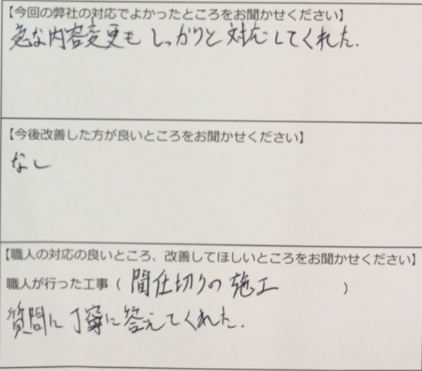 【今回の弊社の対応でよかったところをお聞かせください】
急な内容変更もしっかりと対応してくれた.
【今後改善した方が良いところをお聞かせください】
なし
【職人の対応の良いところ、改善してほしいところをお聞かせください】
職人が行った工事（間仕切りの施工）
質問に丁寧に答えてくれた.